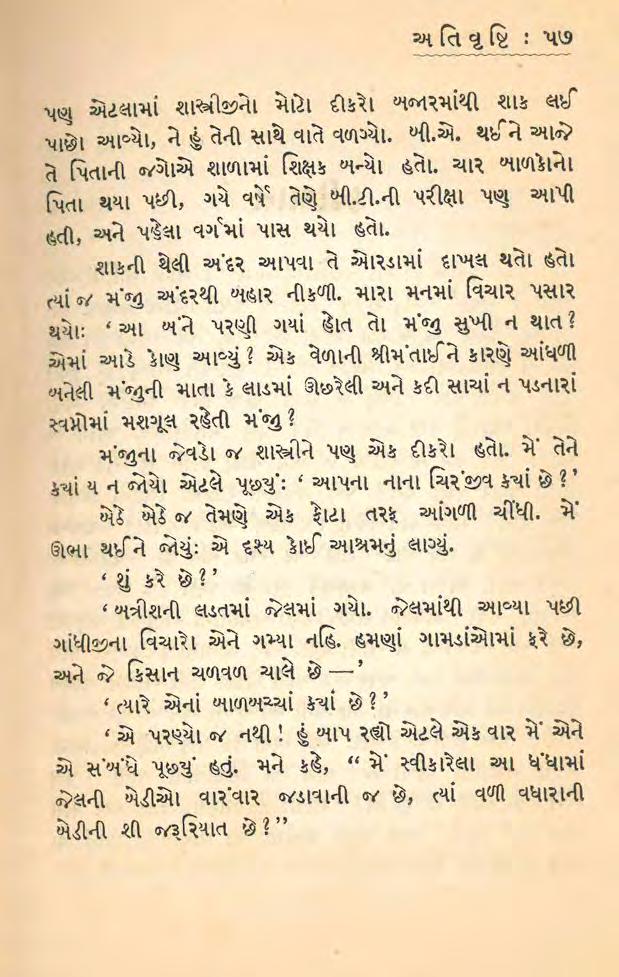 અતિવૃષ્ટિ : ૫૭
પણ એટલામાં શાસ્ત્રીજીનો મોટો દીકરો બજારમાંથી શાક લઈ
પાછો આવ્યો, ને હું તેની સાથે વાતે વળગ્યો. બી.એ. થઈને આજે
તે પિતાની જગોએ શાળામાં શિક્ષક બન્યો હતો. ચાર બાળકોનો
પિતા થયા પછી, ગયે વર્ષે તેણે બી.ટી.ની પરીક્ષા પણ આપી
હતી, અને પહેલા વર્ગમાં પાસ થયો હતો.
શાકની થેલી અંદર આપવા તે ઓરડામાં દાખલ થતો હતો
ત્યાં જ મંજુ અંદરથી બહાર નીકળી. મારા મનમાં વિચાર પસાર
થયોઃ ‘ આ બંને પરણી ગયાં હોત તો મંજુ સુખી ન થાત?
એમાં આડે કોણ આવ્યું? એક વેળાની શ્રીમંતાઈને કારણે આંધળી
બનેલી મંજુની માતા કે લાડમાં ઊછરેલી અને કદી સાચાં ન પડનારાં
સ્વપ્નોમાં મશગૂલ રહેતી મંજુ?
મંજુના જેવડો જ શાસ્ત્રીને પણ એક દીકરો હતો. મેં તેને
ક્યાં ય ન જોયો એટલે પૂછ્યુંઃ ‘ આપના નાના ચિરંજીવ ક્યાં છે?’
બેઠે બેઠે જ તેમણે એક ફોટા તરફ આંગળી ચીંધી. મેં
ઊભા થઈને જોયુંઃ એ દૃશ્ય કોઈ આશ્રમનું લાગ્યું.
‘ શું કરે છે?’
‘ બત્રીશની લડતમાં જેલમાં ગયો. જેલમાંથી આવ્યા પછી
ગાંધીજીના વિચારો એને ગમ્યા નહિ. હમણાં ગામડાંઓમાં ફરે છે,
અને જે કિસાન ચળવળ ચાલે છે —’
‘ ત્યારે એનાં બાળબચ્ચાં ક્યાં છે?’
‘ એ પરણ્યો જ નથી! હું બાપ રહ્યો એટલે એક વાર મેં એને
એ સંબંધે પૂછ્યું હતું. મને કહે, “ મેં સ્વીકારેલા આ ધંધામાં
જેલની બેડીઓ વારંવાર જડાવાની જ છે, ત્યાં વળી વધારાની
બેડીની શી જરૂરિયાત છે?”